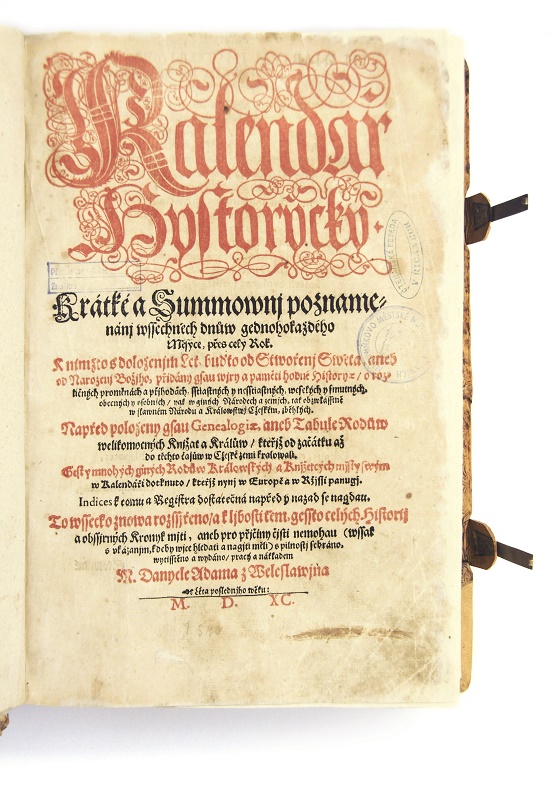 Kalendář
Hystorycký.
Krátké a Summownj pozname-
nánj wssechněch dnůw gednohokaždého
Měsýce, přes celý Rok.
K nimžto s doloženjm Let, buďto od Stwořenj Swěta, aneb
od Narozenj Božjho, přidány gsau wjry a paměti hodné Hystorye / o roz-
ličných proměnách a přjhodách, sstiastných y nesstiastných, weselých y smutných,
obecných y osobnjch / yak w giných Národech a zemjch, tak obzwlásstně
w slawném Národu a Králowstwj Cžeském, zběhlých.
Napřed položeny gsau Genealogiæ, aneb Tabule Rodůw
welikomocných Knjžat a Králůw / kteřjž od začátku až
do těchto časůw w Cžeské zemi kralowali.
Gest y mnohých giných Rodůw Králowských a Knjžetcých mjsty swým
w Kalendáři dotknuto / kteřjž nynj w Europě a w Řjssi panugj.
Indices k tomu a Regístra dostatečná napřed y nazad se nagdau.
To wssecko znowa rozssjřeno / a k ljbosti těm, gessto celých Historij
a obssjrných Kronyk mjti, aneb pro přjčiny čjsti nemohau (wssak
s vkázanjm, kdeby wjce hledati a nagjti měli) s pilnostj sebráno,
wytisstěno a wydáno / pracý a nákladem
M. Danyele Adama z Weleslawjna
Léta poslednjho wěku:
M. D. XC.
1590